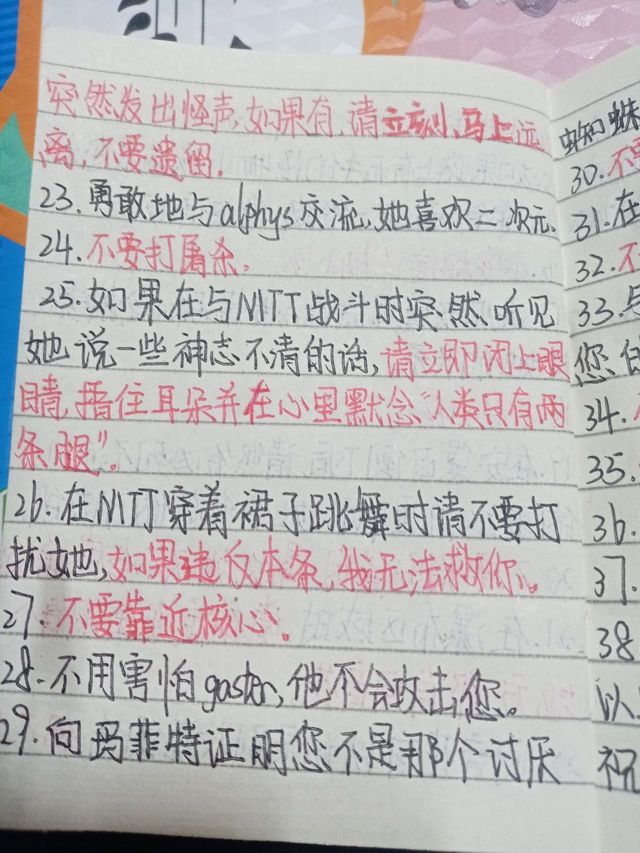 突然发出怪声,如果有,请立刻、马上远
离,不要遗留.
23.勇敢地与alphys交流,她喜欢二次元.
24.不要打屠杀。
25.如果在与MTT战斗时突然听见
她说一些神志不清的话,请立即闭上眼
睛,捂住耳朵并在心里默念"人类只有两
条腿"。
26.在MTT穿着裙子跳舞时请不要打
扰她,如果违反本条,我无法救你。
27.不要靠近核心。
28.不用害怕gaster,他不会攻击您。
29.向玛菲特证明您不是那个讨厌
蜘蛛
30.不
31.在
32.不
33.
您
34.
35.
36.
37.
38
以
祝